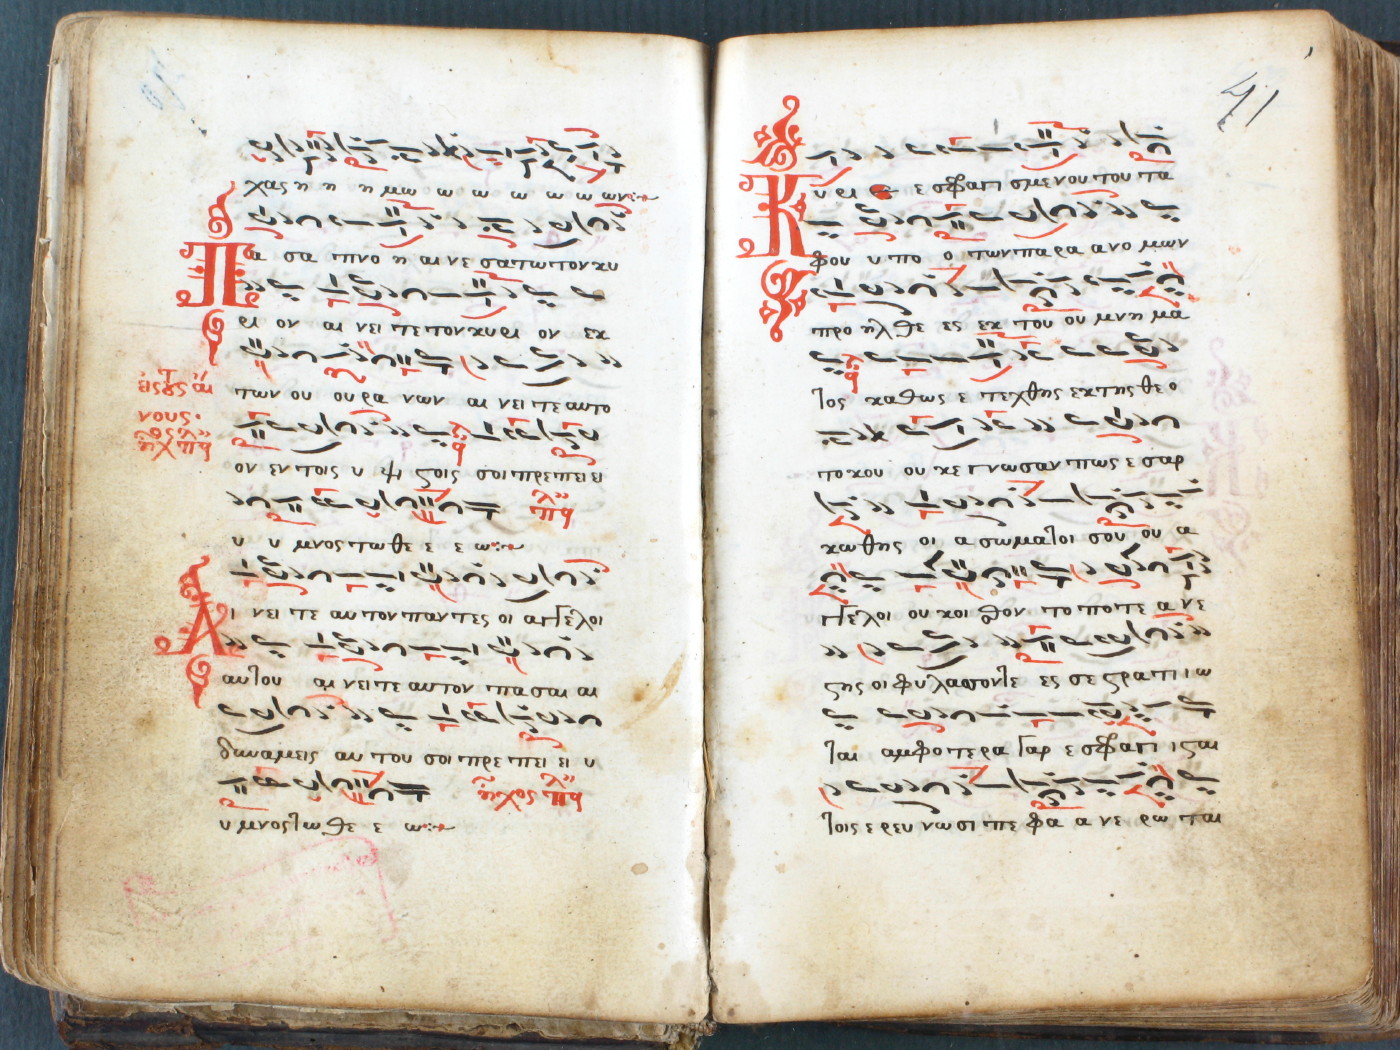 χας η η η μω ω ω ω ω ω ων
Πα σα πνο η αι νε σα τω τον κυ
ρι ον αι νει τε τον κυ ρι ον εκ
των ου ου ρα νων αι νει τε αυτο
ον εν τοις υ ψι ζοις σοι πρε πει ει
υ υ μνος τω θε ε ε ω
Αι νει τε αυ τον παν τες οι αγγελοι
αυτου αι νει τε αυτον πα σαι αι
δυναμεις αυ του σοι πρε πει ει υ
ηχος πλ
υ μνος τω θε ε ω
εις τους αι
νους
41
Κυ ρι ε ε σφαγι σμε νου του τα
φου υ πο ο των παρα α νο μων
προ ηλ θε ες εκ του ου μνη μα
τος καθως ε τεχθης εκ της θε ο
το κου ου κε γνωσαν πως ε σαρ
κω θης οι α σωματοι σου ου α
γγελοι ου κοι σθον το πο τε α νε
ζης οι φυλασσοντε ες σε ζρα τι ι ω
ται αμφο τερα γαρ ε σφαγι ι ζαι
τοις ε ρευ νω σι πε φα α νε ρω ται